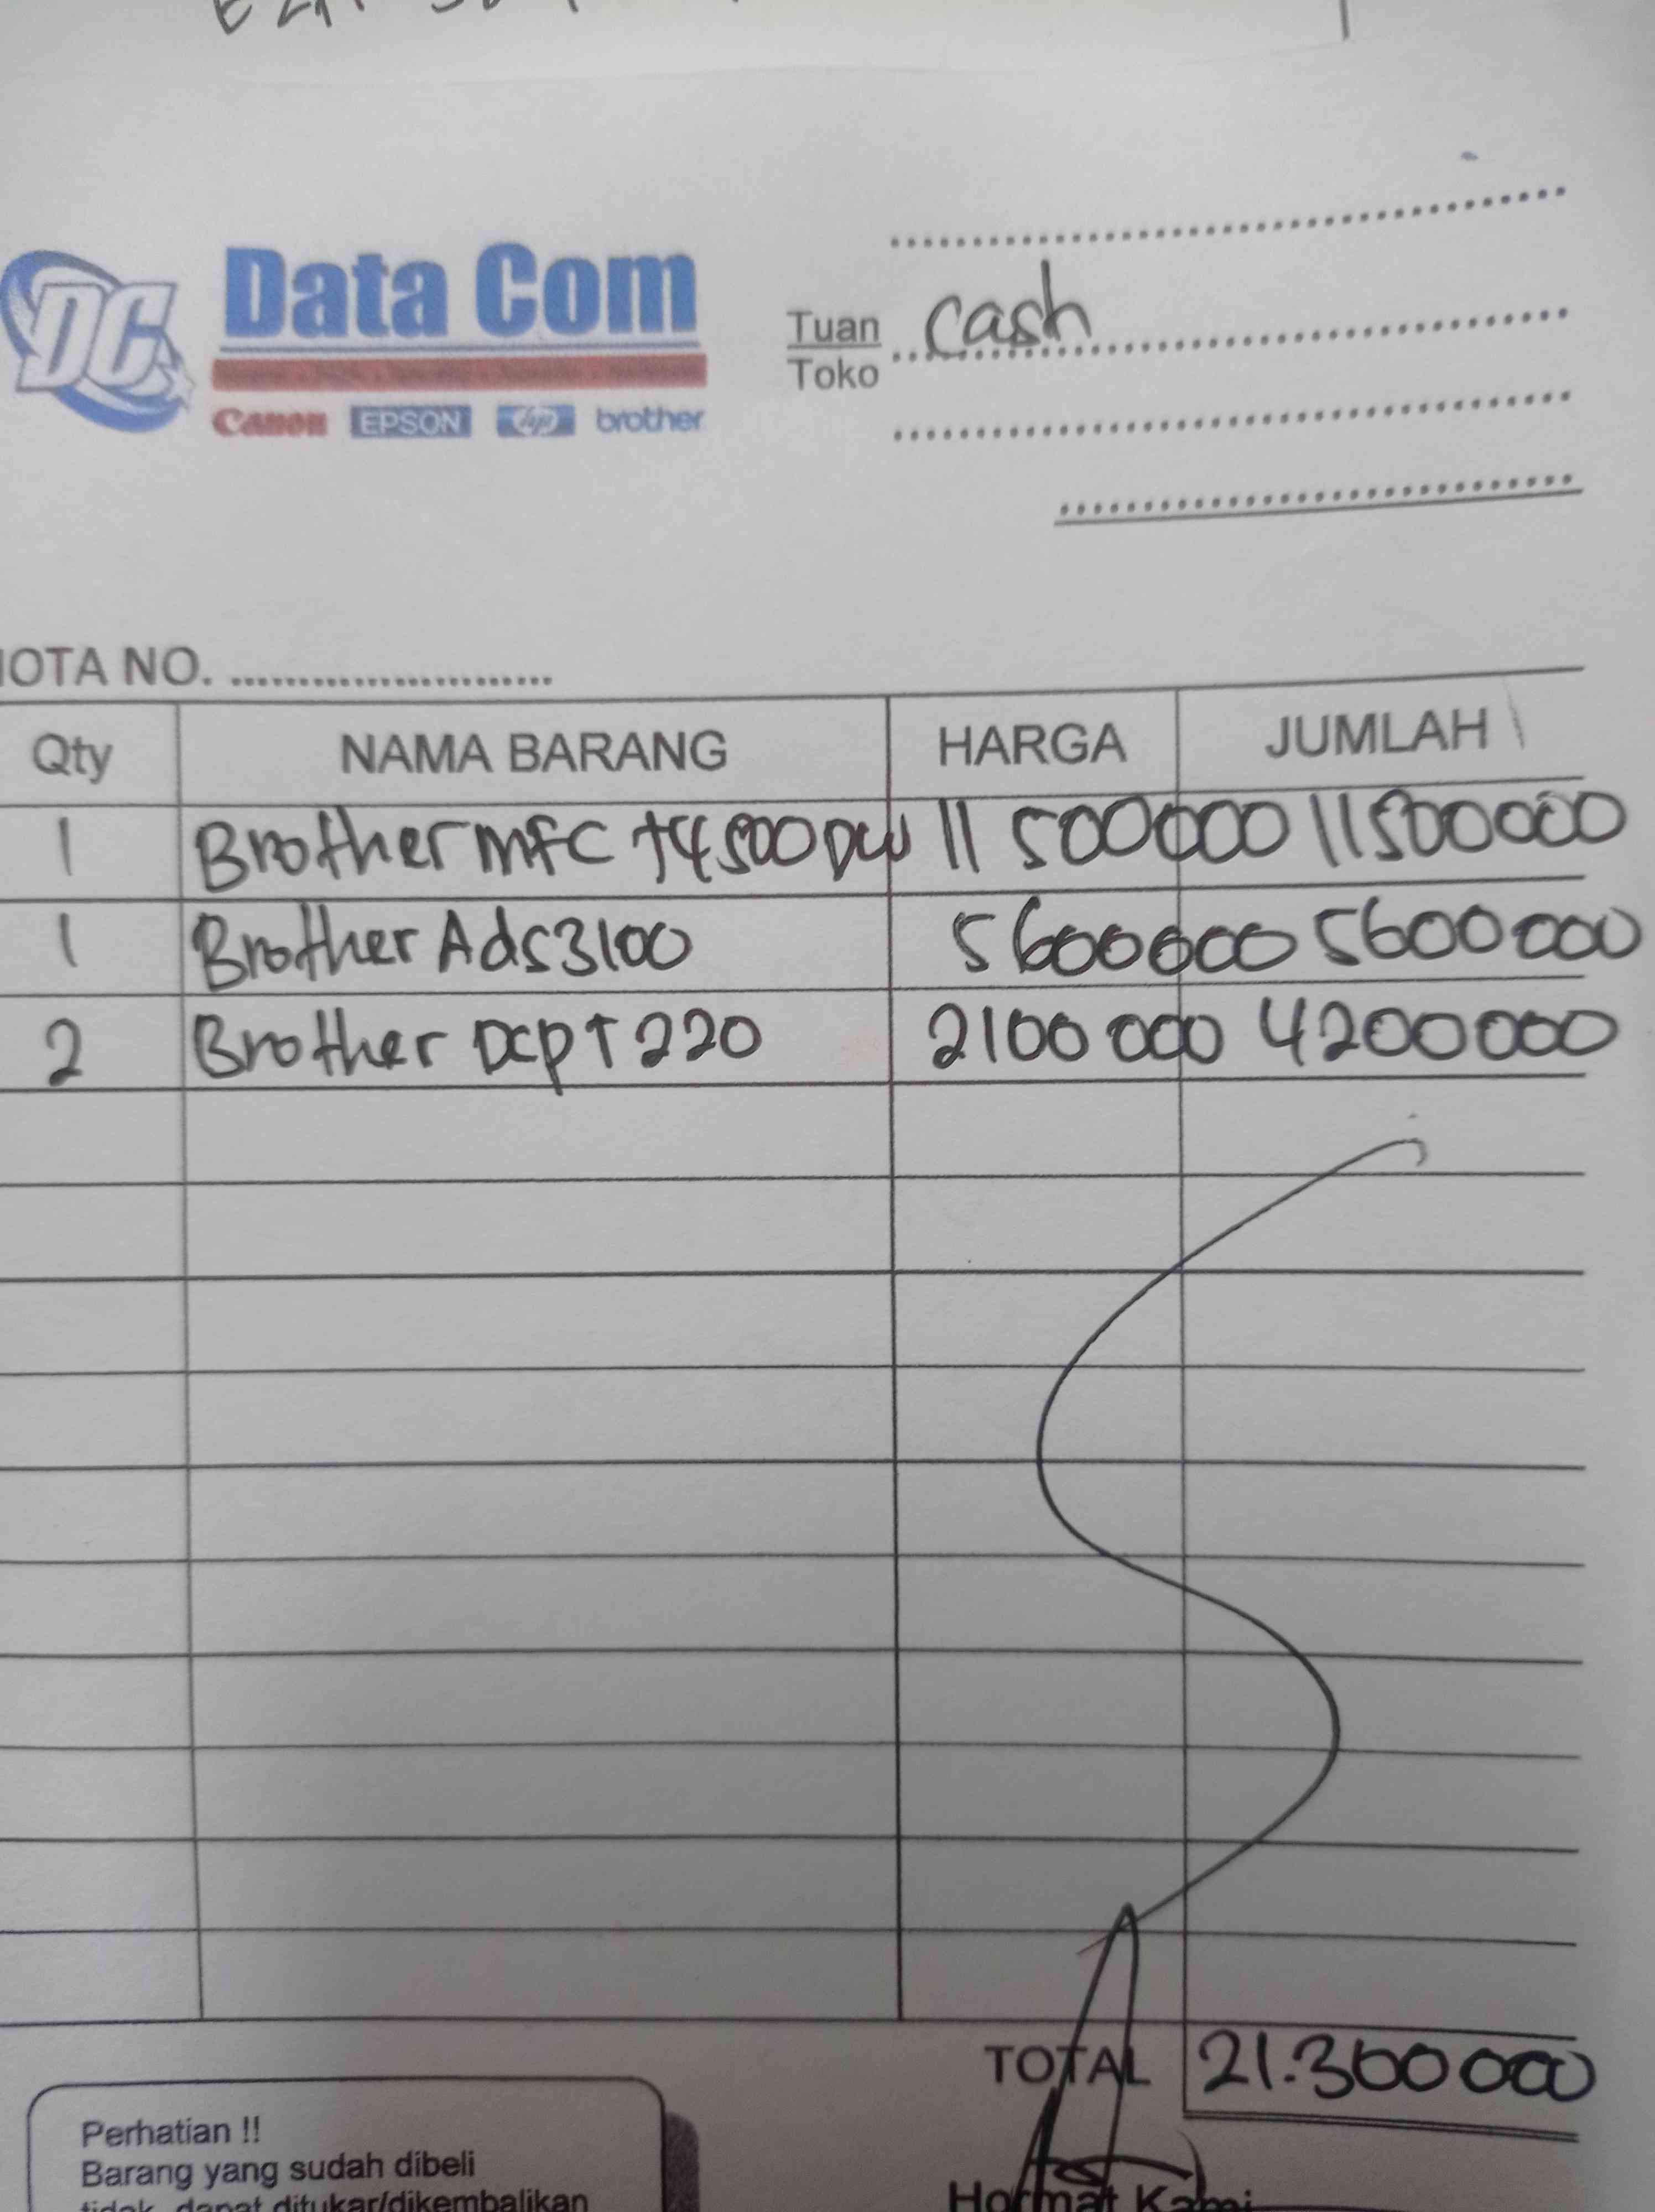 DC
Data Com
Canon EPSON hp brother
Tuan cash
Toko
NOTA NO. ........................
Qty NAMA BARANG HARGA JUMLAH
1 Brother mfc t4500DW 11 500000 11500000
1 Brother Ads3100 5600000 5600000
2 Brother Dcp T220 2100 000 4200000
TOTAL 21.300000
Perhatian !!
Barang yang sudah dibeli
tidak dapat ditukar/dikembalikan
Hormat Kami